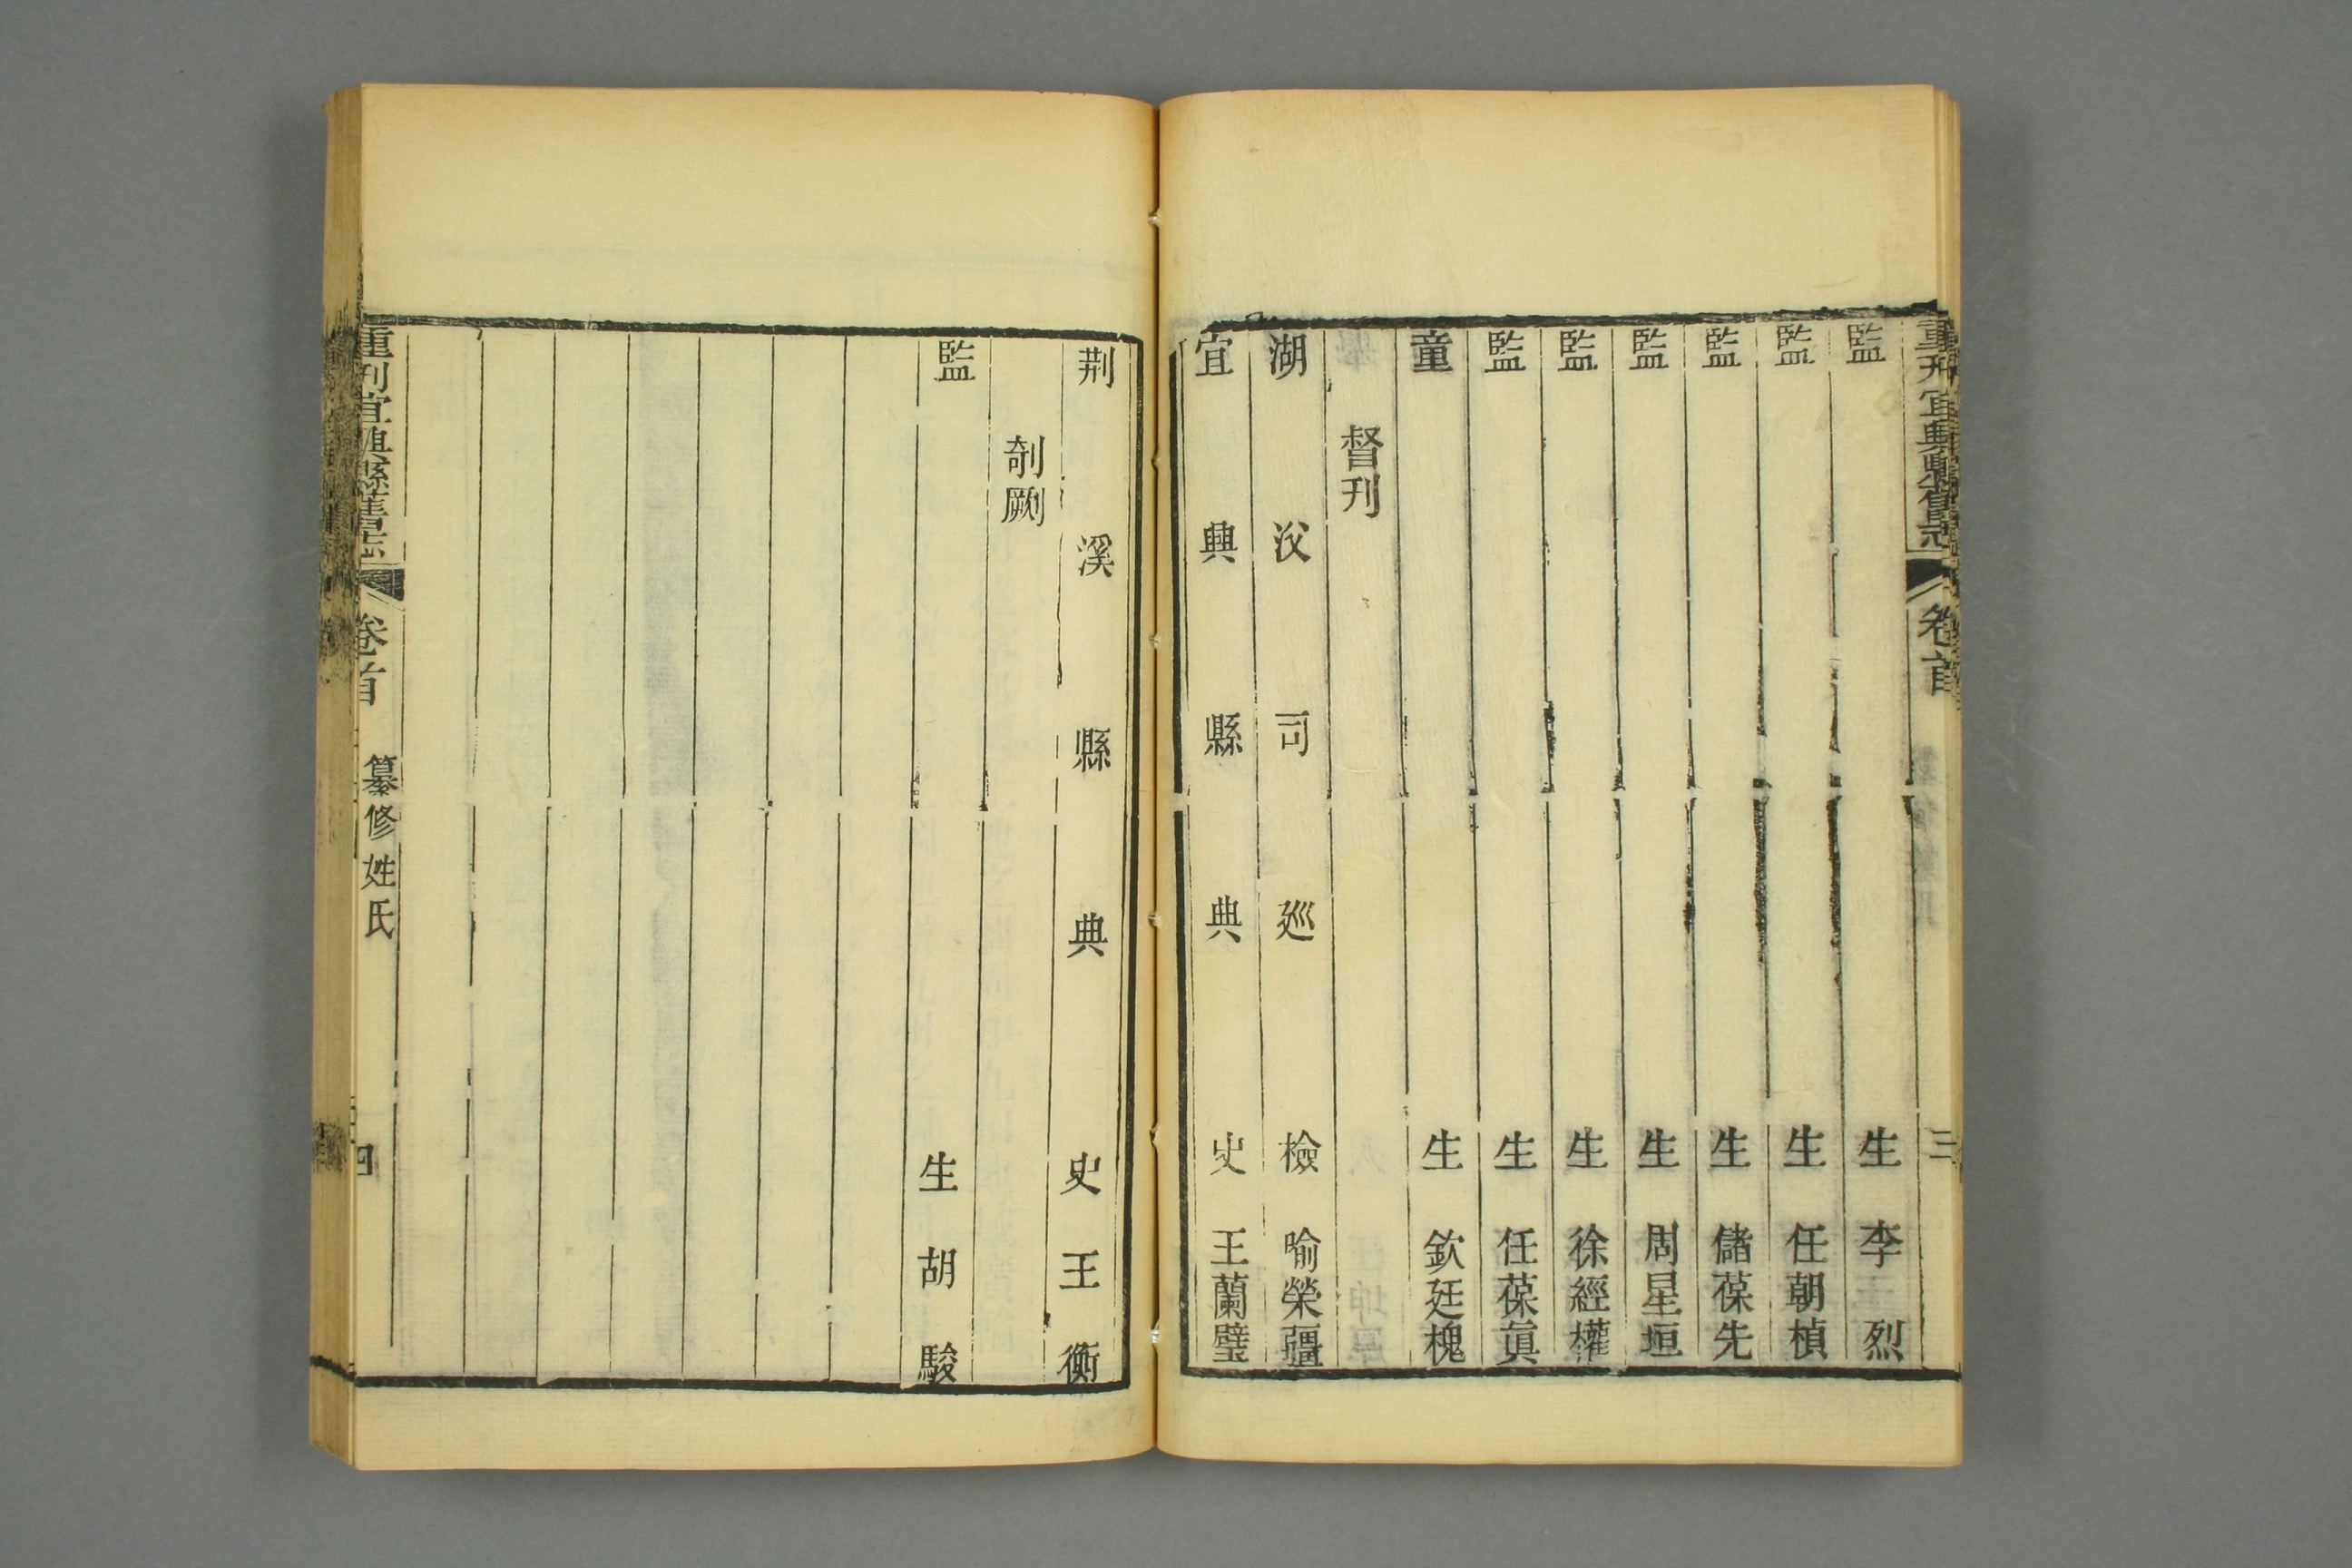 重刊宜興縣舊志 卷首 三
監生 李烈
監生 任朝楨
監生 儲葆先
監生 周星垣
監生 徐經權
監生 任葆眞
童生 欽廷槐
督刊
湖㳇司廵檢 喻榮疆
宜興縣典史 王蘭璧
荆溪縣典史 王衡
剞劂
監生 胡駿
重刊宜興縣舊志 卷首 纂修姓氏 四